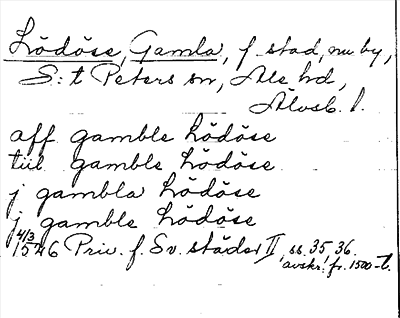 Lödöse, Gamla, f. stad, nu by,
S:t Peters sn, Ale hd,
Älvsb. l.
aff gamble Lödöse
tiil gamble Lödöse
j gambla Lödöse
j gamble Lödöse
4/3
1546 Priv. f. Sv. städer II, ss. 35, 36.
avskr. fr. 1500-t.